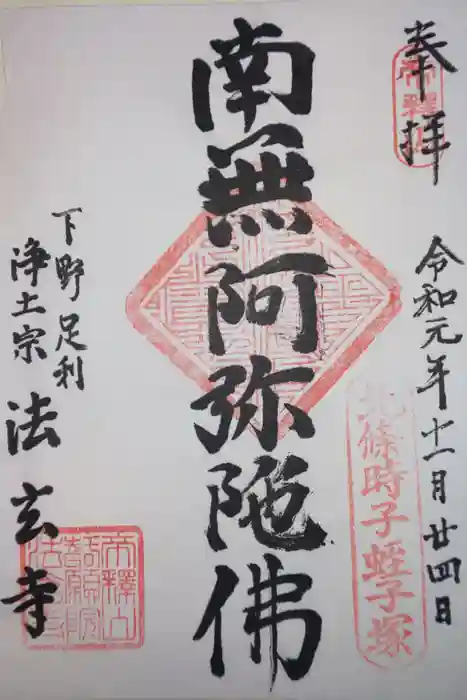 奉拝
令和元年十一月廿四日
北條時子蛭子塚
南無阿弥陀佛
下野足利
浄土宗
法玄寺
帝釋山